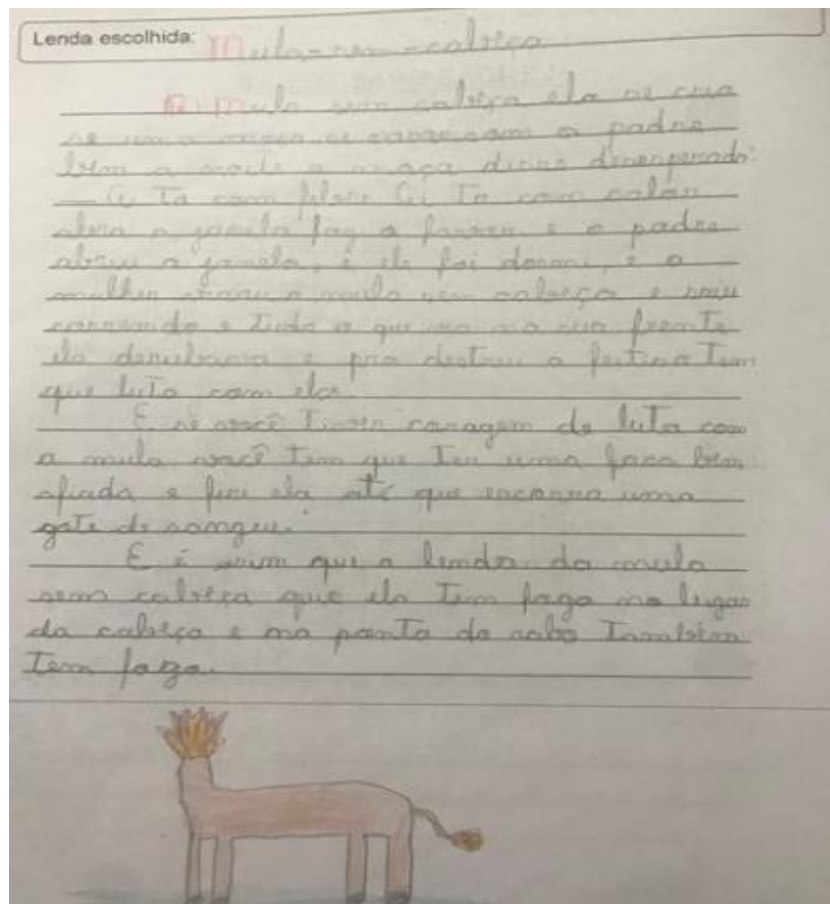 Lenda escolhida: Mula-sem-cabeça
A mula sem cabeça ela se cria
se uma moça se com o padre
bem a noite a moça disine desesperado:
— Ai To com Ai To com calor
abra a janela faz a e o padre
abriu a janela, e ele foi dormi, e a
mulher virou a mula sem cabeça e saiu
correndo e Tudo o que via na sua frente
ela derrubava e pra destrui o feitiso Tem
que luta com ela.
E se você Tiver coragem de luta com
a mula você tem que Ter uma faca bem
afiada e firi ela até que escorra uma
gota de sangue.
E é asim que a lenda da mula
sem cabeça que ela Tem fogo no lugar
da cabeça e na ponta do rabo Também
Tem fogo.